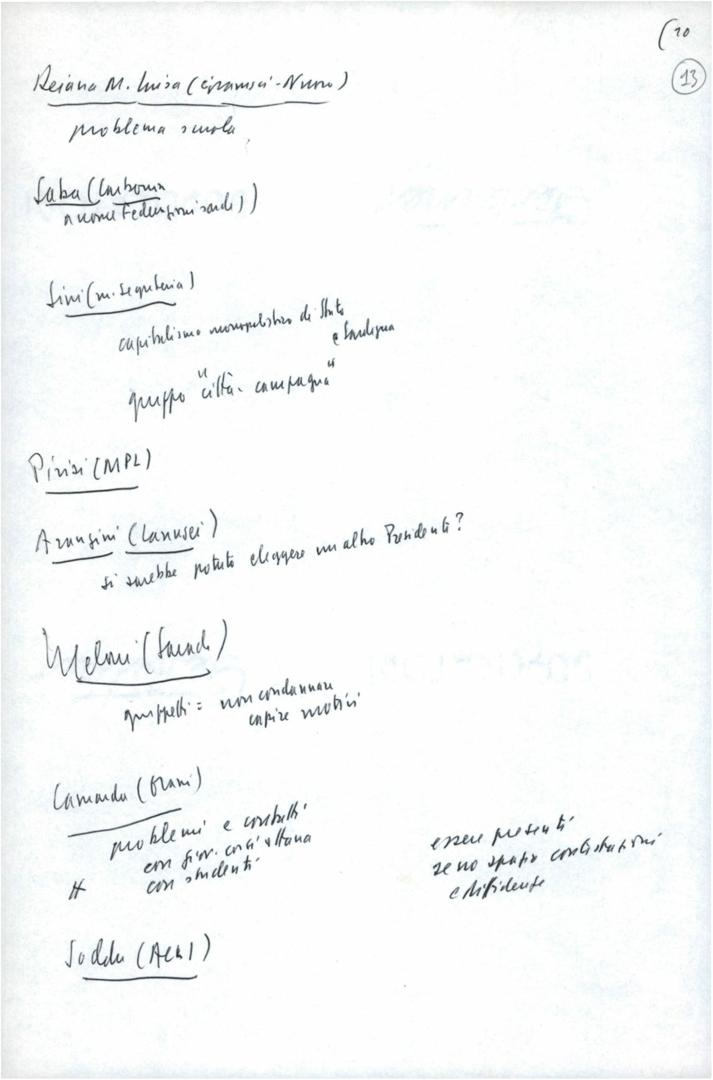 (20
13
Deiana M. Luisa (Gramsci-Nuoro)
problema scuola
Saba (Carbonia
nuova Federazioni sarde))
Sini (m. segreteria)
capitalismo monopolistico di Stato
e Sardegna
gruppo "città-campagna"
Pirisi (MPL)
Arangini (Lanusei)
si sarebbe potuto eleggere un altro Presidente?
Meloni
gruppetti = non condannare
capire motivi
Camarda
problemi e contatti
con giov. così ottana
con studenti
essere presenti
se no spazio contestazioni
e diffidenze
Soddu (Acli)